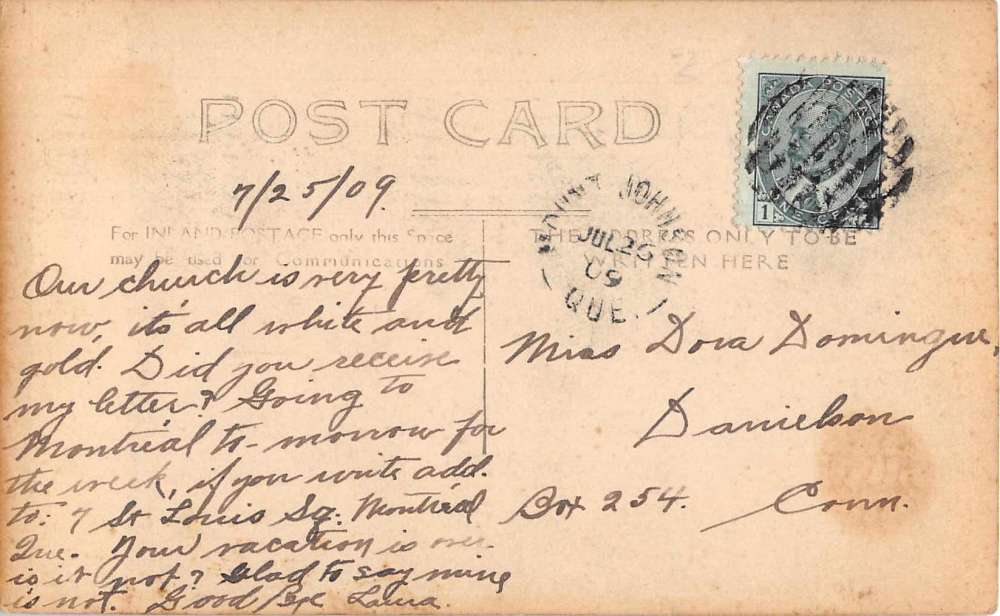 POST CARD
CANADA POSTAGE
1
ONE CENT
7/25/09.
MOUNT JOHNSON
JUL 26
09
QUE.
For INLAND POSTAGE only this Space
may be used for Communications
THE ADDRESS ONLY TO BE
WRITTEN HERE
Our church is very pretty
now, it's all white and
gold. Did you receive
my letter? Going to
Montréal to-morrow for
the week, if you write add.
to: 7 St Louis Sq. Montréal
Que. Your vacation is over
is it not? Glad to say mine
is not. Good Bye Laura.
Miss Dora Domingue,
Danielson
Box 254. Conn.